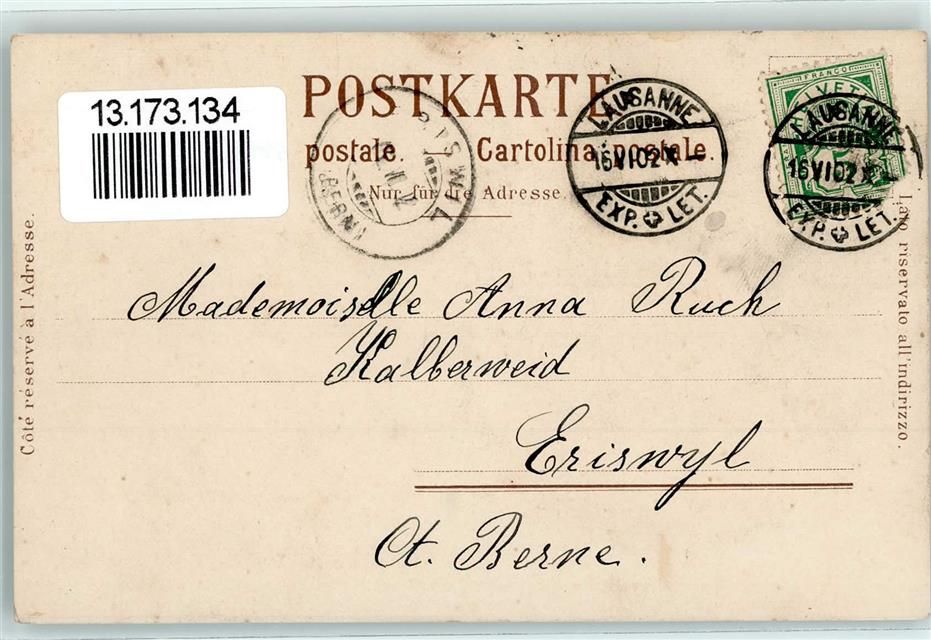 13.173.134
POSTKARTE
postale. Cartolina postale.
Nur für die Adresse.
LAUSANNE
16 VI 02 X –
EXP. LET.
FRANCO
LAUSANNE
16 VI 02 X –
EXP. LET.
(BERN)
Côté réservé à l'Adresse.
Lato riservato all'indirizzo.
Mademoiselle Anna Ruch
Kalberweid
Eriswyl
Ct. Berne.